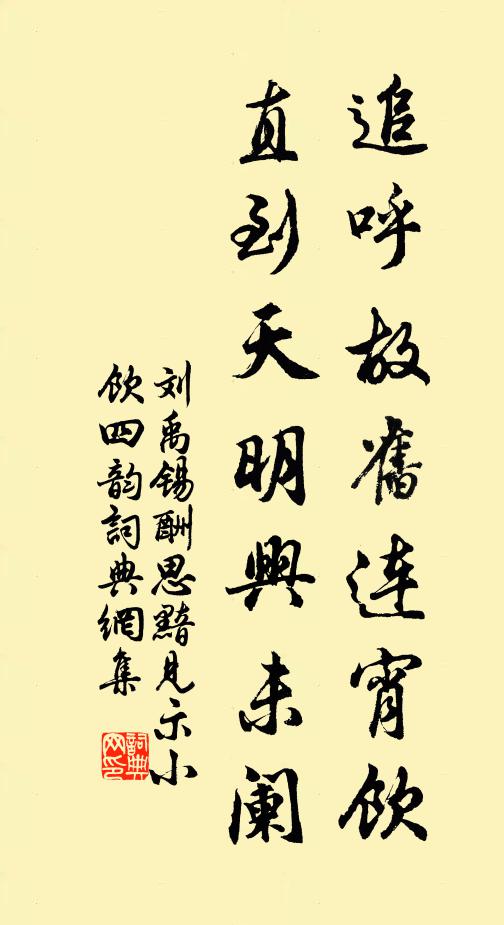 追呼故舊连宵饮
直到天明興未阑
刘禹锡酬思黯见示小
饮四韵詞典網集
詞典
网印